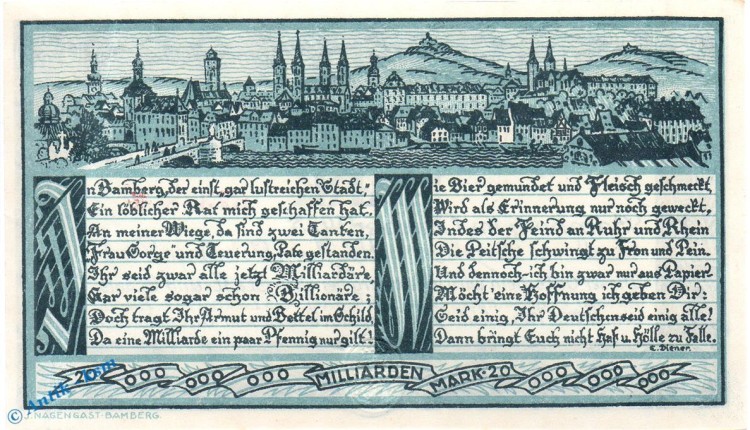 In Bamberg, der einst, gar lustreichen Stadt,
Ein löblicher Rat mich geschaffen hat.
An meiner Wiege, da sind zwei Tanten,
Frau Sorge und Teuerung, Pate gestanden.
Ihr seid zwar alle jetzt Milliardäre,
Gar viele sogar schon Billionäre;
Doch tragt Ihr Armut und Bettel im Schild,
Da eine Milliarde ein paar Pfennig nur gilt!
Wie Bier gemundet und Fleisch geschmeckt,
Wird als Erinnerung nur noch geweckt,
Indes der Feind an Ruhr und Rhein
Die Peitsche schwingt zu Fron und Pein.
Und dennoch-ich bin zwar nur aus Papier-
Möcht' eine Hoffnung ich geben Dir:
Seid einig, Ihr Deutschen seid einig alle!
Dann bringt Euch nicht Haß u. Hölle zu Falle.
E. Diener.
20 000 000 000 MILLIARDEN MARK·20 000 000 000
J. NAGENGAST-BAMBERG.